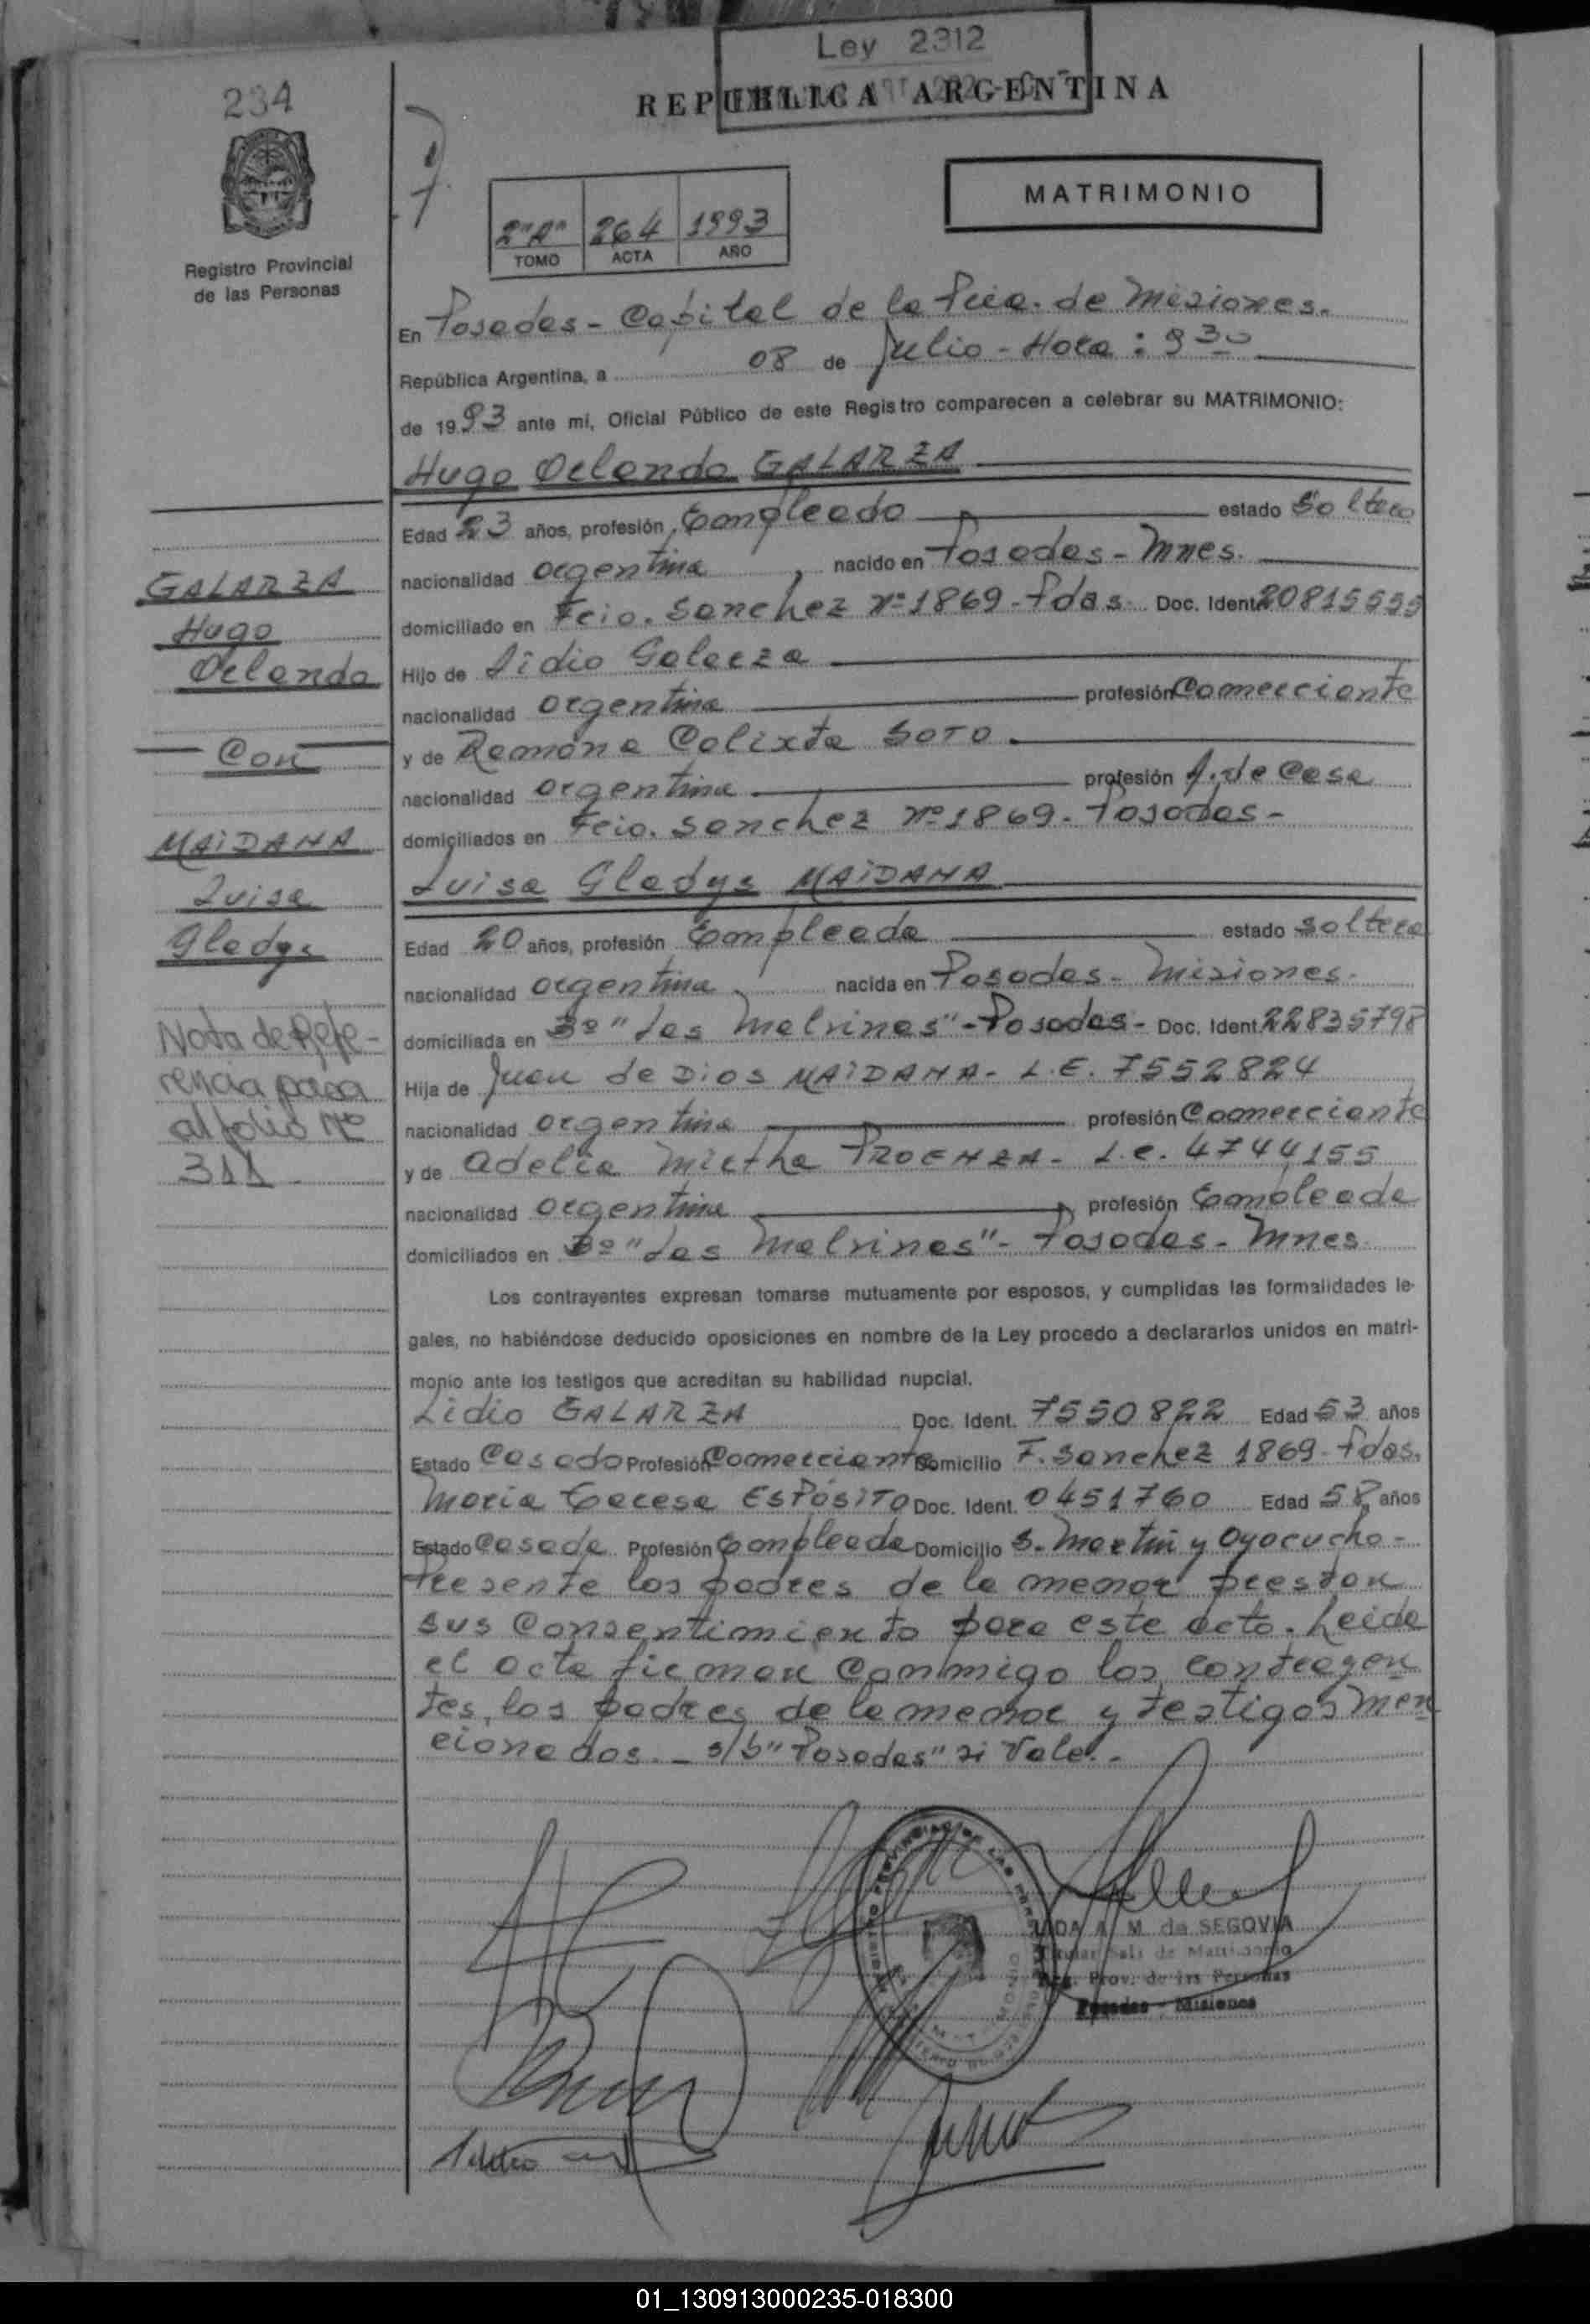 Ley 2312
234
REPUBLICA ARGENTINA
MATRIMONIO
2"A" 264 1993
TOMO ACTA AÑO
Registro Provincial
de las Personas
En Posadas - Capital de la Pcia. de Misiones.
República Argentina, a 08 de Julio - Hora: 9 30
de 1993 ante mi, Oficial Público de este Registro comparecen a celebrar su MATRIMONIO:
Hugo Orlando GALARZA
Edad 23 años, profesión Empleado estado Soltero
nacionalidad argentina, nacido en Posadas - Mnes.
domiciliado en Fcio. Sanchez Nº 1869 - Pdas. Doc. Ident. 20815555
Hijo de Lidio Galarza
nacionalidad argentina profesión Comerciante
y de Ramona Calixta SOTO
nacionalidad argentina profesión A. de Casa
domiciliados en Fcio. Sanchez Nº 1869 - Posadas -
Luisa Gladys MAIDANA
Edad 20 años, profesión Empleada estado soltera
nacionalidad argentina, nacida en Posadas - Misiones.
domiciliada en Bº "Las Malvinas" - Posadas - Doc. Ident. 22835798
Hija de Juan de Dios MAIDANA - L.E. 7552824
nacionalidad argentina profesión Comerciante
y de Adelia Mirtha PROENZA - L.C. 4744155
nacionalidad argentina, profesión Empleada
domiciliados en Bº "Las Malvinas" - Posadas - Mnes
Los contrayentes expresan tomarse mutuamente por esposos, y cumplidas las formalidades le-
gales, no habiéndose deducido oposiciones en nombre de la Ley procedo a declararlos unidos en matri-
monio ante los testigos que acreditan su habilidad nupcial.
Lidio GALARZA Doc. Ident. 7550822 Edad 53 años
Estado Casado Profesión Comerciante Domicilio F. Sanchez 1869 - Pdas.
Maria Teresa ESPÓSITO Doc. Ident. 0451760 Edad 58 años
Estado Casada Profesión Empleada Domicilio S. Martin y Ayacucho -
Presente los padres de la menor prestan
sus Consentimiento para este acto. Leida
el acta firman conmigo los contrayen
tes, los padres de la menor y testigos men
cionados. - s/b "Posadas" si Vale. -
GALARZA
Hugo
Orlando
Con
MAIDANA
Luisa
Gladys
Nota de Refe-
rencia pasa
al folio Nº
311
A. M. de SEGOVIA
Titular Sala de Matrimonio
Reg. Prov. de las Personas
Posadas - Misiones
01_130913000235-018300